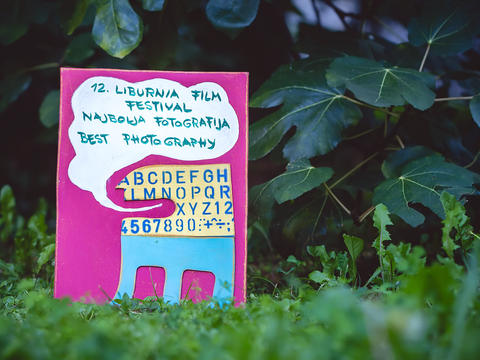 12. LIBURNIA FILM
FESTIVAL
NAJBOLJA FOTOGRAFIJA
BEST PHOTOGRAPHY
ABCDEFGH
LMNOPQR
XYZ12
4567890